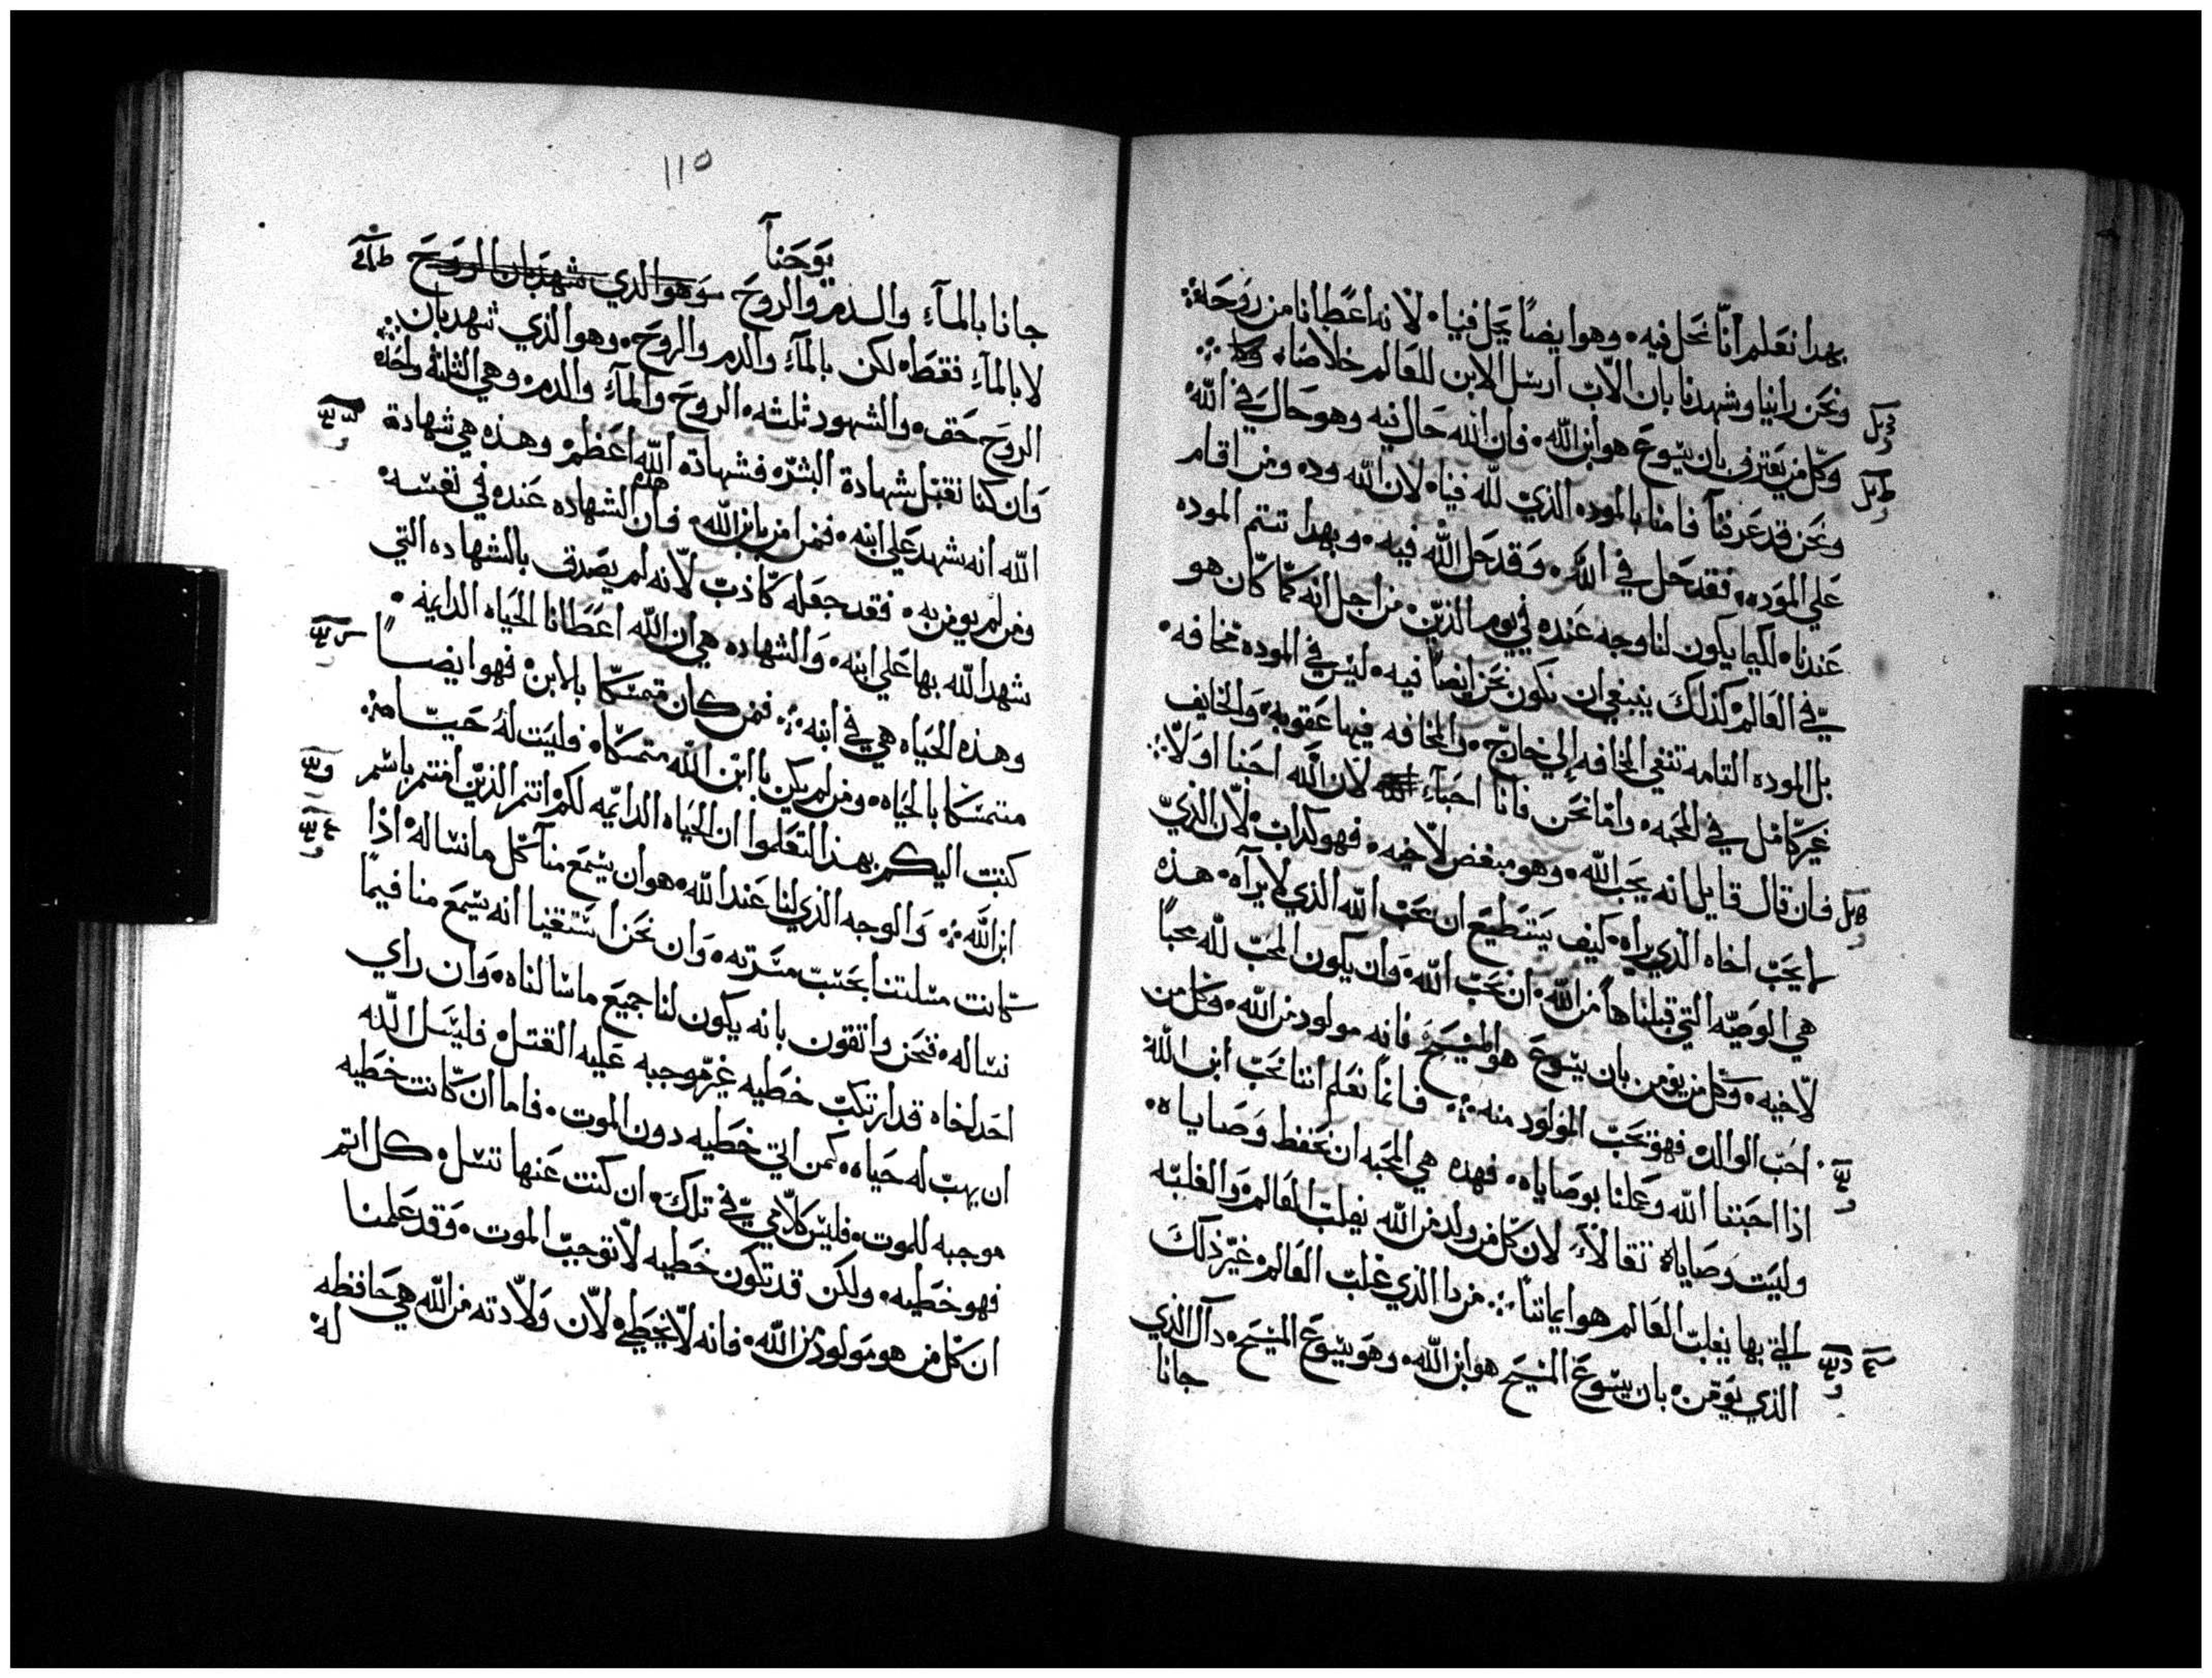 بهدا نعلم انّا نحل فيه وهو ايضاً يحل فينا لانه اعطانا من روحه
ونحن راينا وشهدنا بان الآب ارسل الابن للعالم خلاصاً
وكل من يعترف بان يسوع هو ابن الله فان الله حال فيه وهو حال في الله
ونحن قد عرفنا فامنا بالموده الذي لله فينا لان الله وده ومن اقام
علي الموده فقد حل في الله وقد حل الله فيه وبهدا تتم الموده
عندنا لكيما يكون لنا وجه عنده في يوم الدين من اجل انه كما كان هو
في العالم كذلك ينبغي ان نكون نحن ايضاً فيه ليس في الموده مخافه
بل الموده التامه تنفي المخافه إلي خارج والمخافه فيها عقوبه والخايف
غير كامل في المحبه وامّا نحن فانا احبآء لان الله احبنا اولا
فان قال قايل انه يحب الله وهو مبغض لاخيه فهو كداب لان الذي
لا يحب اخاه الذي يراه كيف يستطيع ان يحب الله الذي لا يرآه هذه
هي الوصيّه التي قبلناها من الله ان نحب الله وان يكون المحب لله محباً
لاخيه وكل من يومن بان يسوع هو المسيح فانه مولود من الله وكل من
احب الوالد فهو يحب المولود منه فانما نعلم اننا نحب ابن الله
اذا احببنا الله وعملنا بوصاياه فهده هي المحبه ان نحفظ وصاياه
وليست وصاياه ثقالاً لان كل من ولد من الله يغلب العالم والغلبه
التي بها يغلب العالم هو ايماننا من دا الذي غلب العالم غير ذلك
الذي يومن بان يسوع المسيح هو ابن الله وهو يسوع المسيح داك الذي
جانا
١١٥
يوحنا
جانا بالمآء والدم والروح وهو الدي شهد بان الروح
لا بالمآء فقط لكن بالمآء والدم والروح وهو الذي شهد بان
الروح حق والشهود ثلثه الروح والمآء والدم وهي الثلثه واحده
وان كنا نقبل شهادة البشر فشهادة الله اعظم وهذه هي شهادة
الله انه شهد علي ابنه فمن امن بابن الله فان هذه الشهاده عنده في نفسه
ومن لم يومن به فقد جعله كاذب لانه لم يصدق بالشهاده التي
شهد الله بها علي ابنه والشهاده هي ان الله اعطانا الحياه الدايمه
وهذه الحياه هي في ابنه فمن كان متمسكا بالابن فهو ايضاً
متمسكا بالحياه ومن لم يكن بابن الله متمسكا فليست له حياه
كتبت اليكم بهذا لتعلموا ان الحياه الدايمه لكم انتم الذين امنتم باسم
ابن الله والوجه الذي لنا عند الله هو ان يسمع منا كل ما نساله اذا
كانت مسلتنا بحسب مسرته وان نحن استيقنا انه يسمع منا فيما
نساله فنحن واثقون بانه يكون لنا جميع ما سالناه وان راي
احد اخاه قد ارتكب خطيه غير موجبه عليه القتل فليسل الله
ان يهب له حياه كمن اتي خطيه دون الموت فاما ان كانت خطيه
موجبه للموت فليس كلامي في تلك ان كنت عنها تسل كل اتم
فهو خطيه ولكن قد تكون خطيه لا توجب الموت وقد علمنا
ان كل من هو مولود من الله فانه لا يخطي لان ولادته من الله هي حافظه
له